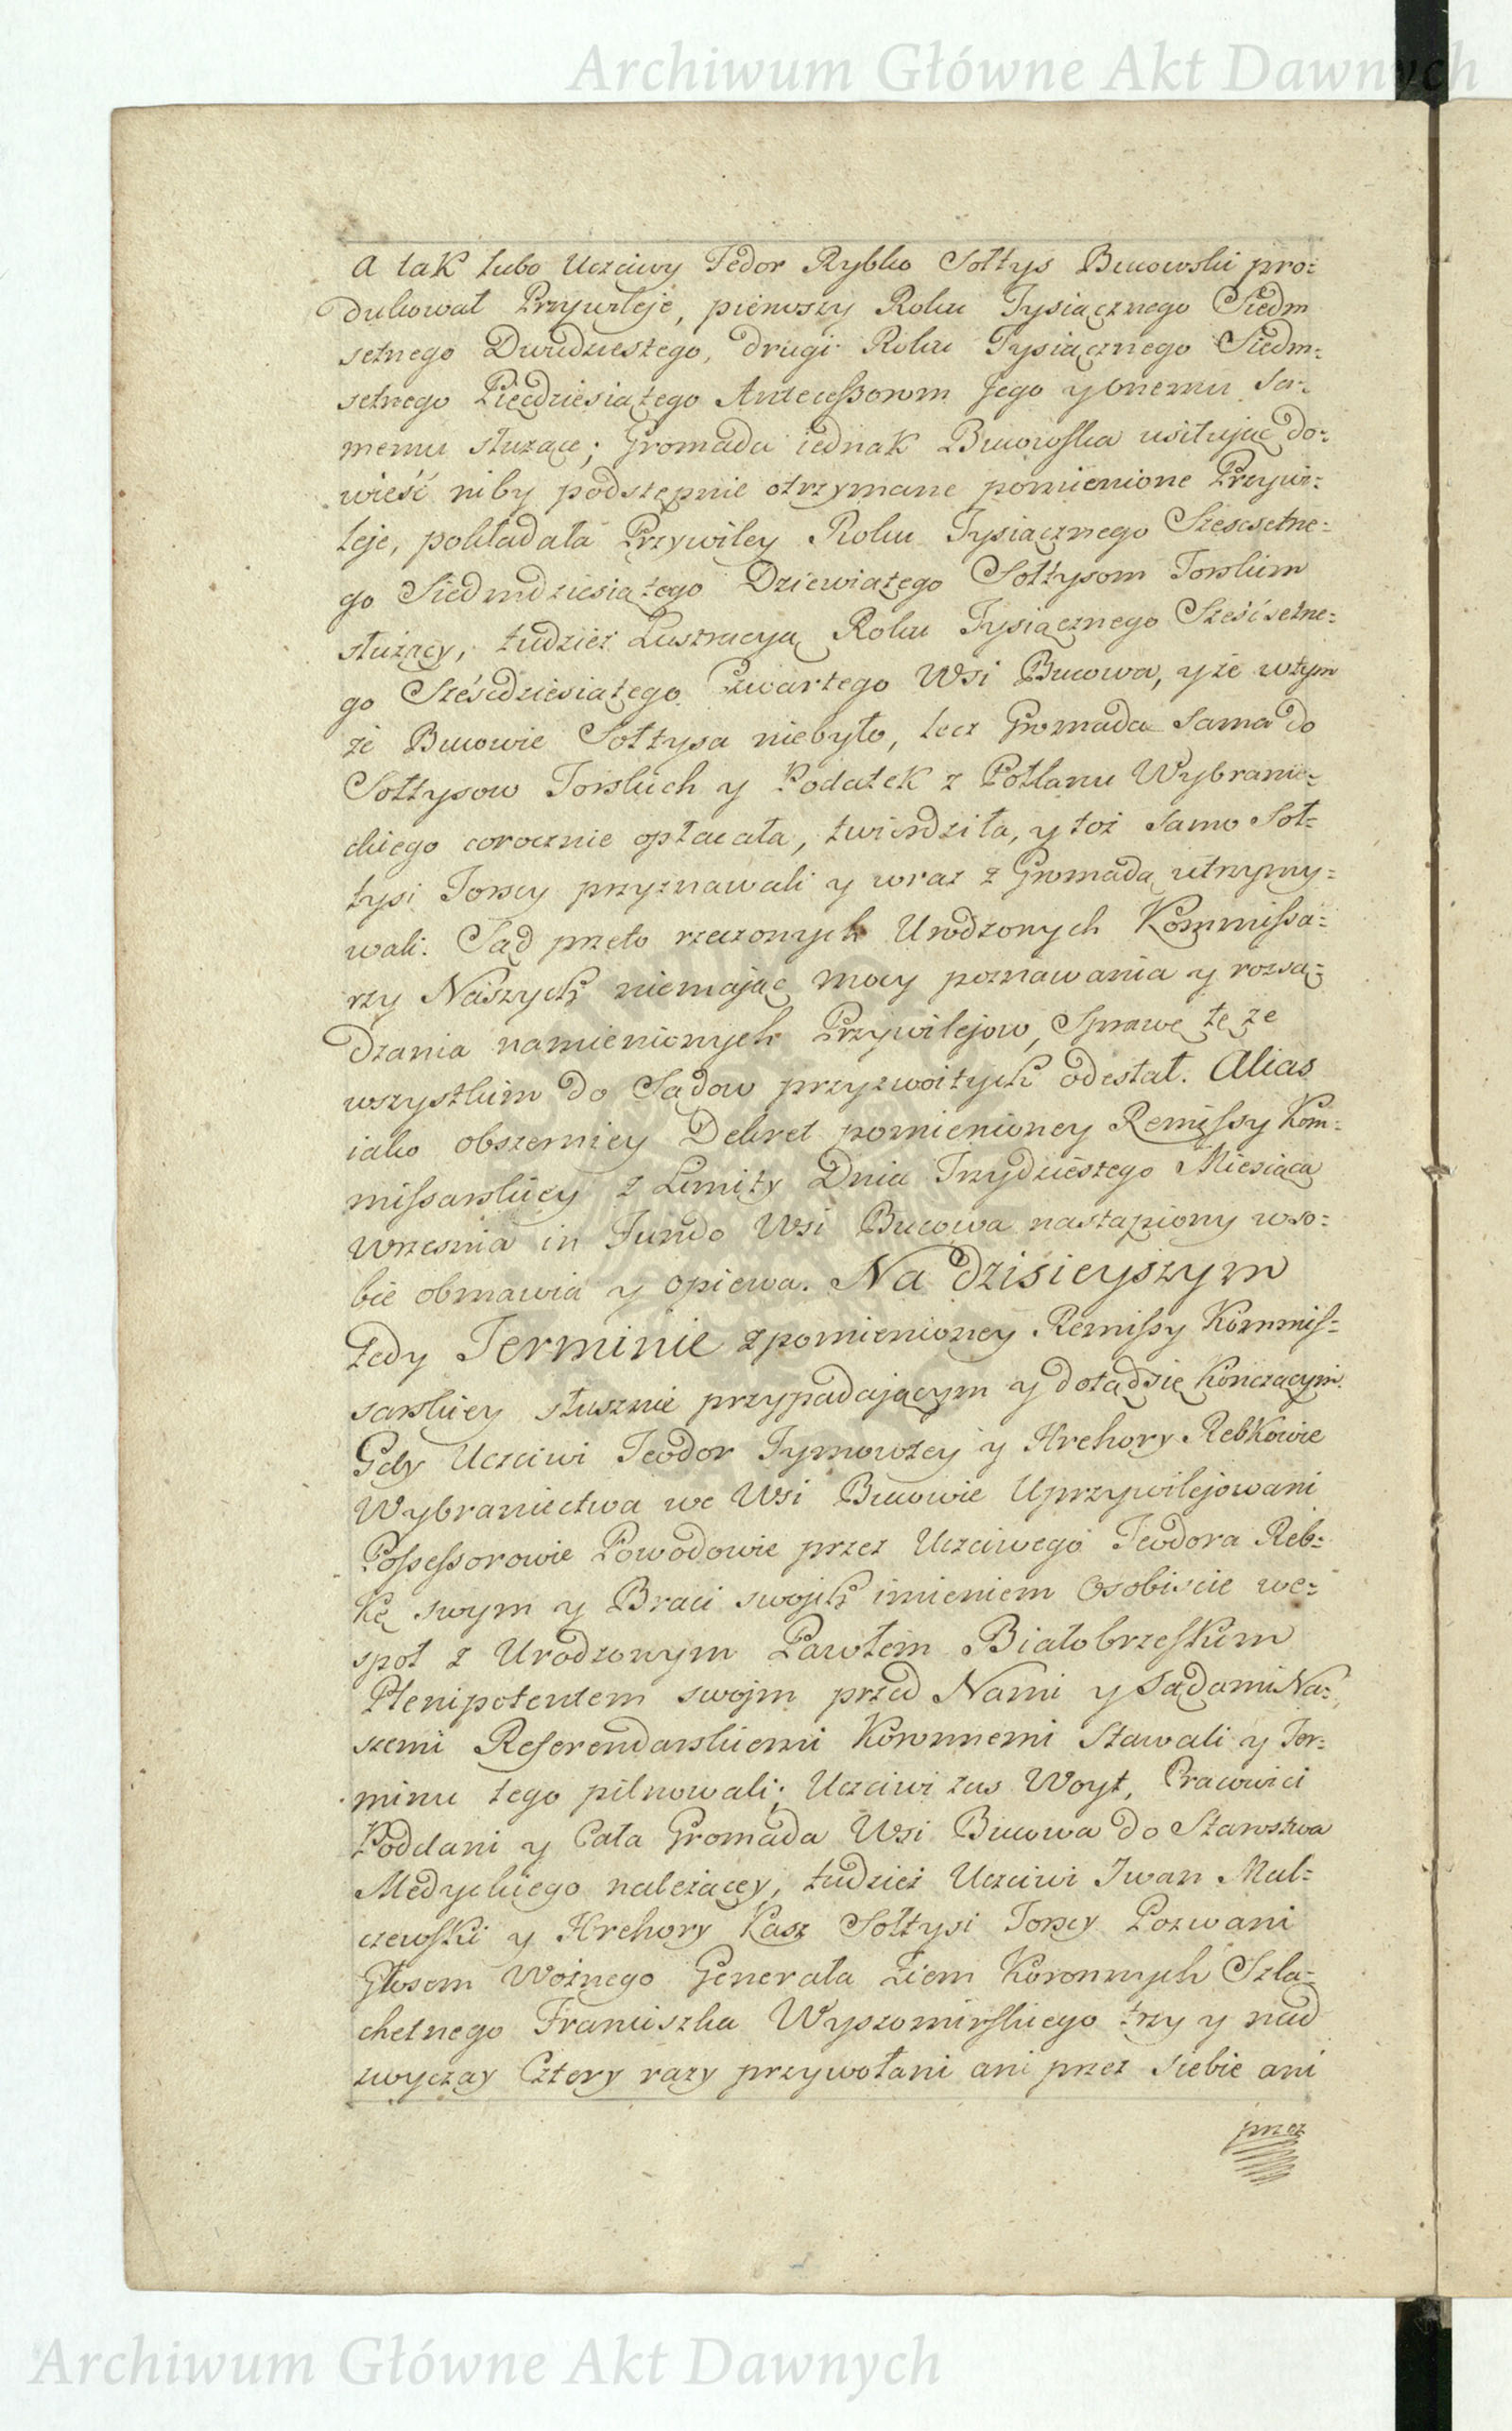 Archiwum Główne Akt Dawnych
A tak lubo Uczciwy Fedor Rybko Sołtys Bucowski pro=
dukował Przywileje, pierwszy Roku Tysiącznego Siedm
setnego Dwudziestego, drugi Roku Tysiącznego Siedm=
setnego Pięcdziesiątego Antecessorom Jego y onemu sa=
memu służące; Gromada iednak Bucowska usiłując do=
wieść niby podstępnie otrzymane pomienione Przywi=
leje, pokładała Przywiley Roku Tysiącznego Szescsetne=
go Siedmdziesiątego Dziewiątego Sołtysom Torskim
służący, tudzież Lustracyą Roku Tysiącznego Sześćsetne=
go Sześcdziesiątego Czwartego Wsi Bucowa, y że wtym
że Bucowie Sołtysa niebyło, lecz Gromada sama do
Sołtysow Torskich y Podatek z Połłanu Wybranie=
ckiego corocznie opłacała, twierdziła, y toż samo Soł=
tysi Torscy przyznawali y wraz z Gromadą utrzymy=
wali. Sąd przeto rzeczonych Urodzonych Kommissa=
rzy Naszych niemając mocy poznawania y rozsą=
dzania namienionych Przywilejow, Sprawę tę ze
wszystkim do Sądow przyzwoitych odesłał. Alias
iako obszerniey Dekret pomienioney Remissy Kom=
missarskiey z Limity Dnia Trzydziestego Miesiąca
Wrzesnia in Fundo Wsi Bucowa nastąpiony wso=
bie obmawia y opiewa. Na dzisieyszym
tedy Terminie zpomienioney Remissy Kommis=
sarskiey słusznie przypadającym y dotądsię kończącym
Gdy Uczciwi Teodor Tymowzey y Hrehory Rebkowie
Wybraniectwa we Wsi Bucowie Uprzywilejowani
Possessorowie Powodowie przez Uczciwego Teodora Reb=
kę swym y Braci swojch imieniem Osobiscie we=
społ z Urodzonym Pawłem Białobrzeskim
Plenipotentem swojm przed Nami y Sądami Na=
szemi Referendarskiemi Koronnemi Stawali y Ter=
minu tego pilnowali; Uczciwi zas Woyt, Pracowici
Poddani y Cała Gromada Wsi Bucowa do Starostwa
Medyckiego należącey, tudzież Uczciwi Iwan Mal=
czewski y Hrehory Kasz Sołtysi Torscy Pozwani
Głosem Woźnego Generała Ziem Koronnych Szla=
chetnego Franciszka Wyszomirskiego trzy y nad
zwyczay Cztery razy przywołani ani przez siebie ani
przez
Archiwum Główne Akt Dawnych